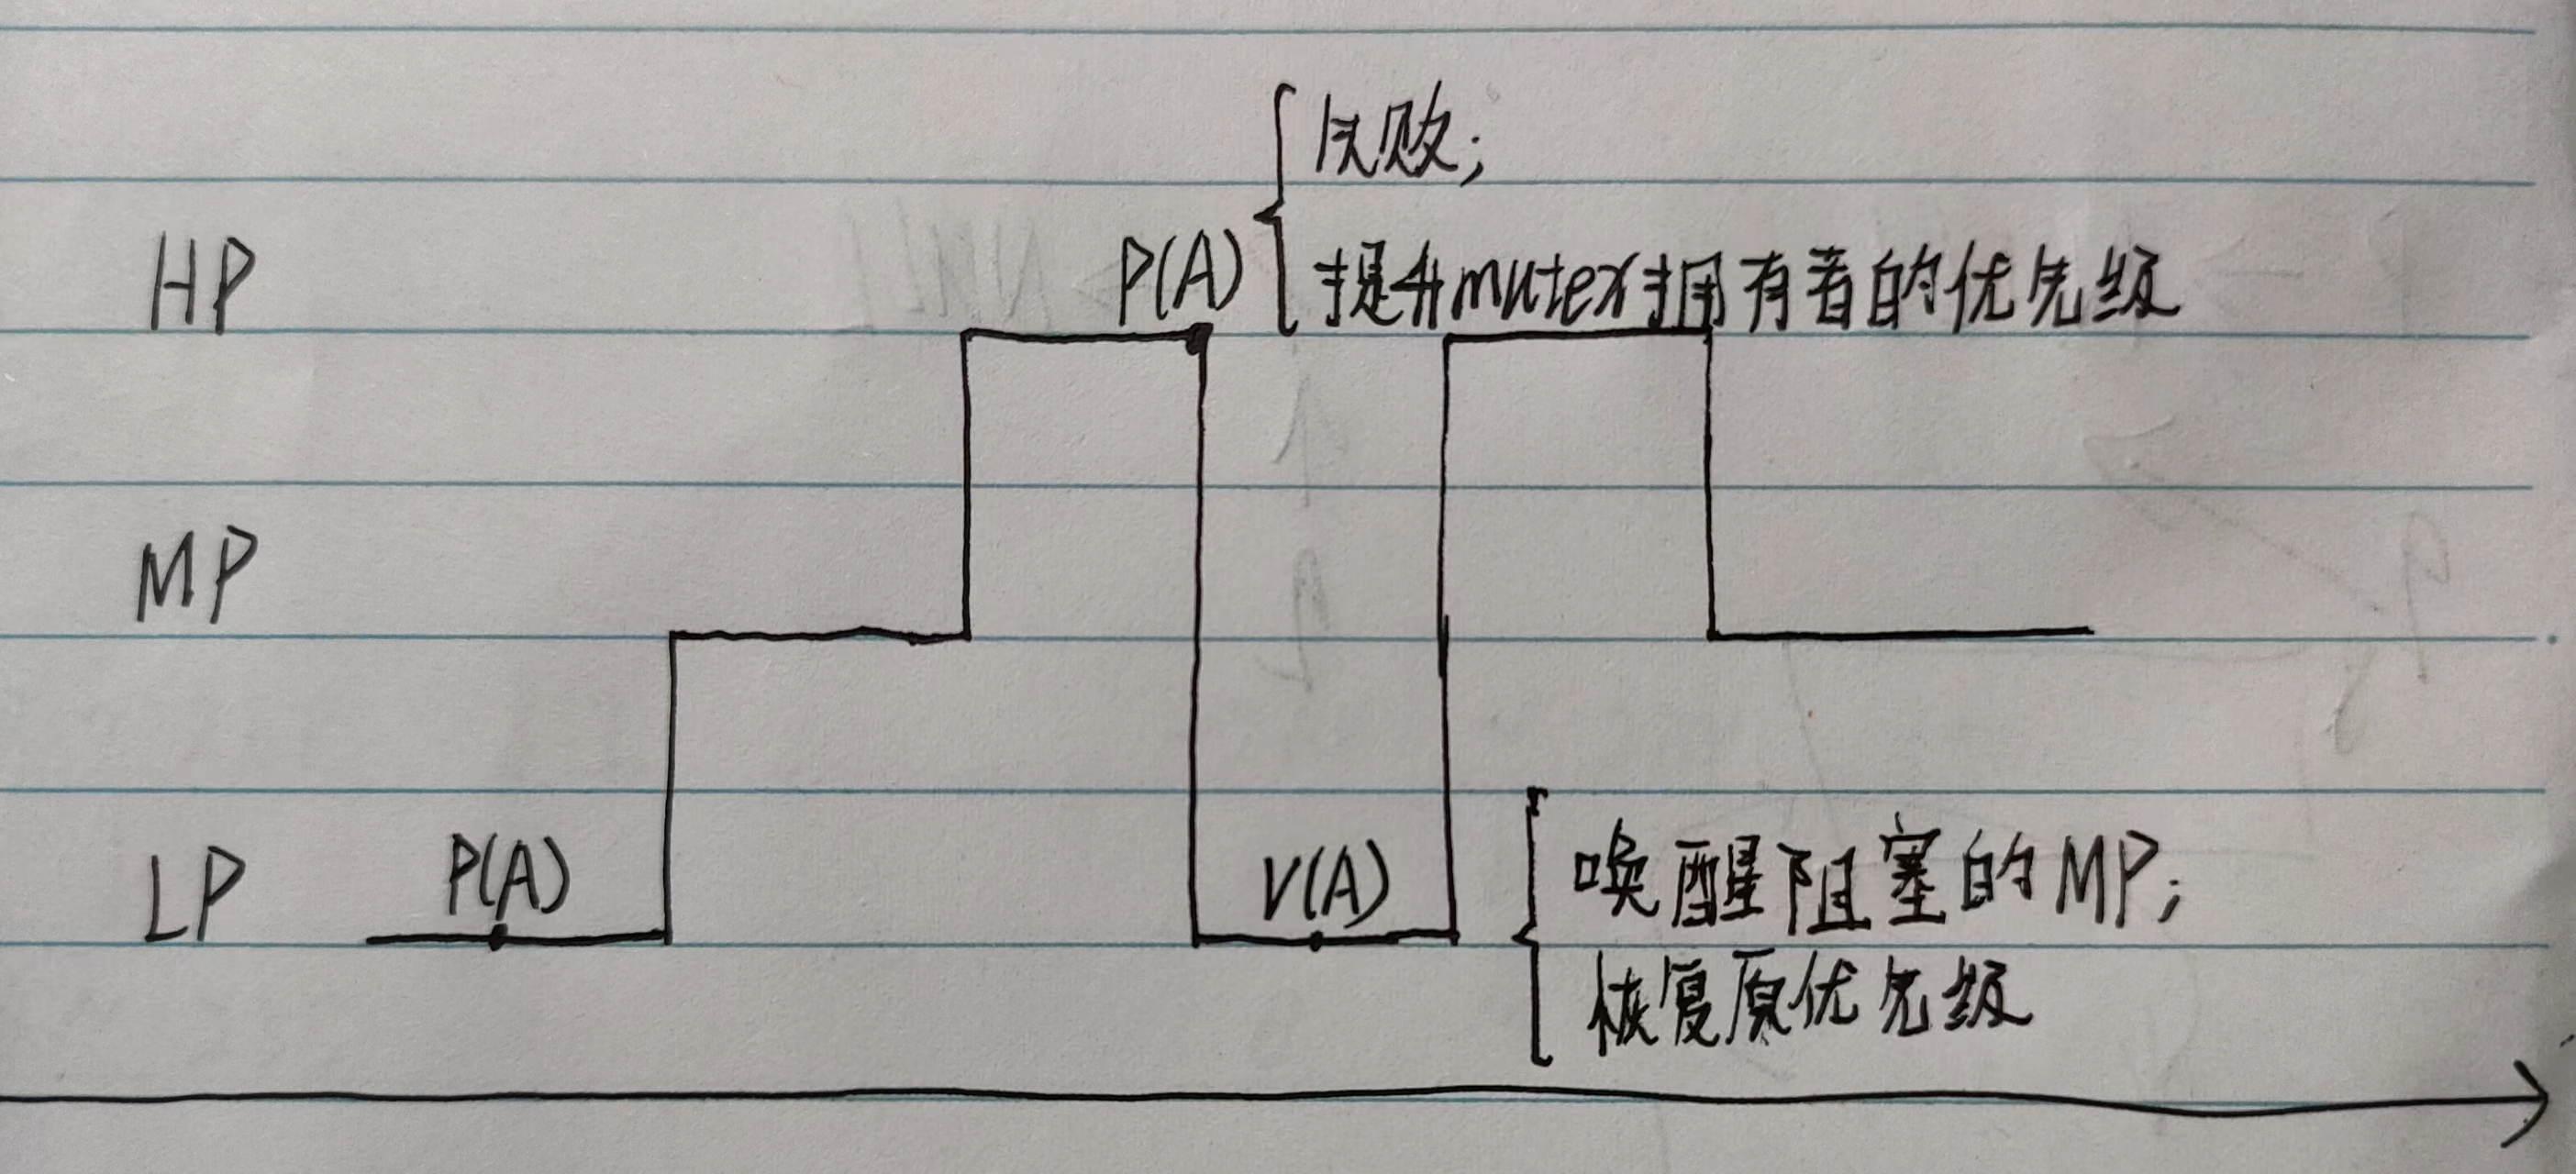 失败;
HP
P(A)
提升mutex拥有者的优先级
MP
LP
P(A)
V(A)
唤醒阻塞的MP;
恢复原优先级